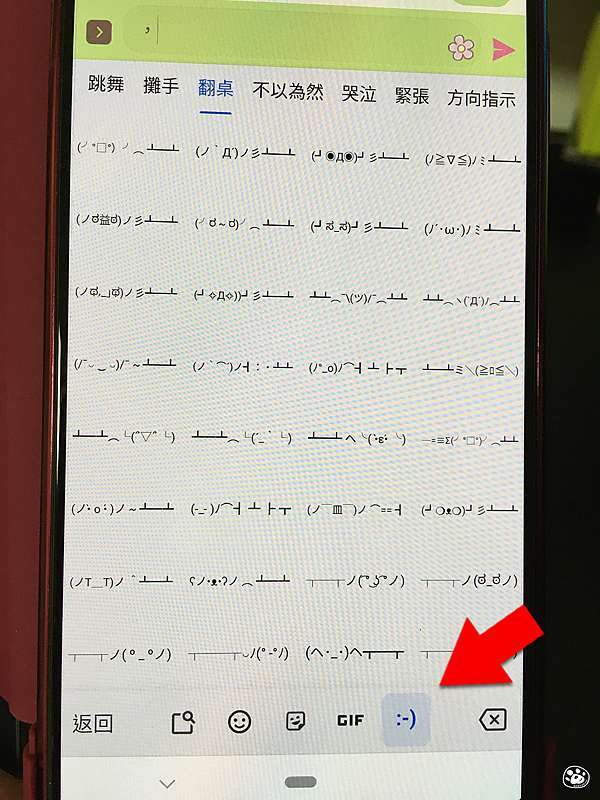 ,
跳舞 攤手 翻桌 不以為然 哭泣 緊張 方向指示
(╯°□°)╯︵┻━┻ (ノ`Д´)ノ彡┻━┻ (┛◉Д◉)┛彡┻━┻ (ﾉ≧∇≦)ﾉミ┻━┻
(ノಠ益ಠ)ノ彡┻━┻ (╯ಠ~ಠ)╯︵┻━┻ (┛ಸ_ಸ)┛彡┻━┻ (ﾉ´･ω･)ﾉミ┻━┻
(ノಥ,_」ಥ)ノ彡┻━┻ (┛✧Д✧))┛彡┻━┻ ┻━┻︵¯\(ツ)/¯︵┻━┻ ┻━┻︵ヽ(`Д´)ﾉ︵┻━┻
(/¯◡ ‿ ◡)/¯~┻━┻ (ノ`⌒´)ノ┫:・┻┻ (/°_o)/⌒┫ ┻ ┣ ┳ ┻━┻ミ\(≧ﾛ≦\)
┻━┻︵└(^▽^└) ┻━┻︵└(´_`└) ┻━┻ヘ╰(•ε•╰) ─=≡Σ(╯°□°)╯︵┻┻
(ノ・o・)ノ~┻━┻ (-_-)/⌒┫ ┻ ┣ ┳ (ノ￣皿￣)ノ⌒==┫ (┛❍ᴥ❍)┛彡┻━┻
(ノT＿T)ノ＾┻━┻ ʕノ•ᴥ•ʔノ︵┻━┻ ┬──┬ノ( ͡° ͜ʖ ͡°ノ) ┬──┬ノ(ಠ_ಠノ)
┬──┬ノ(º_ºノ) ┬───┬◡ﾉ(°-°ﾉ) (ヘ･_･)ヘ┳━┳ ┬──┬
返回 GIF :-)